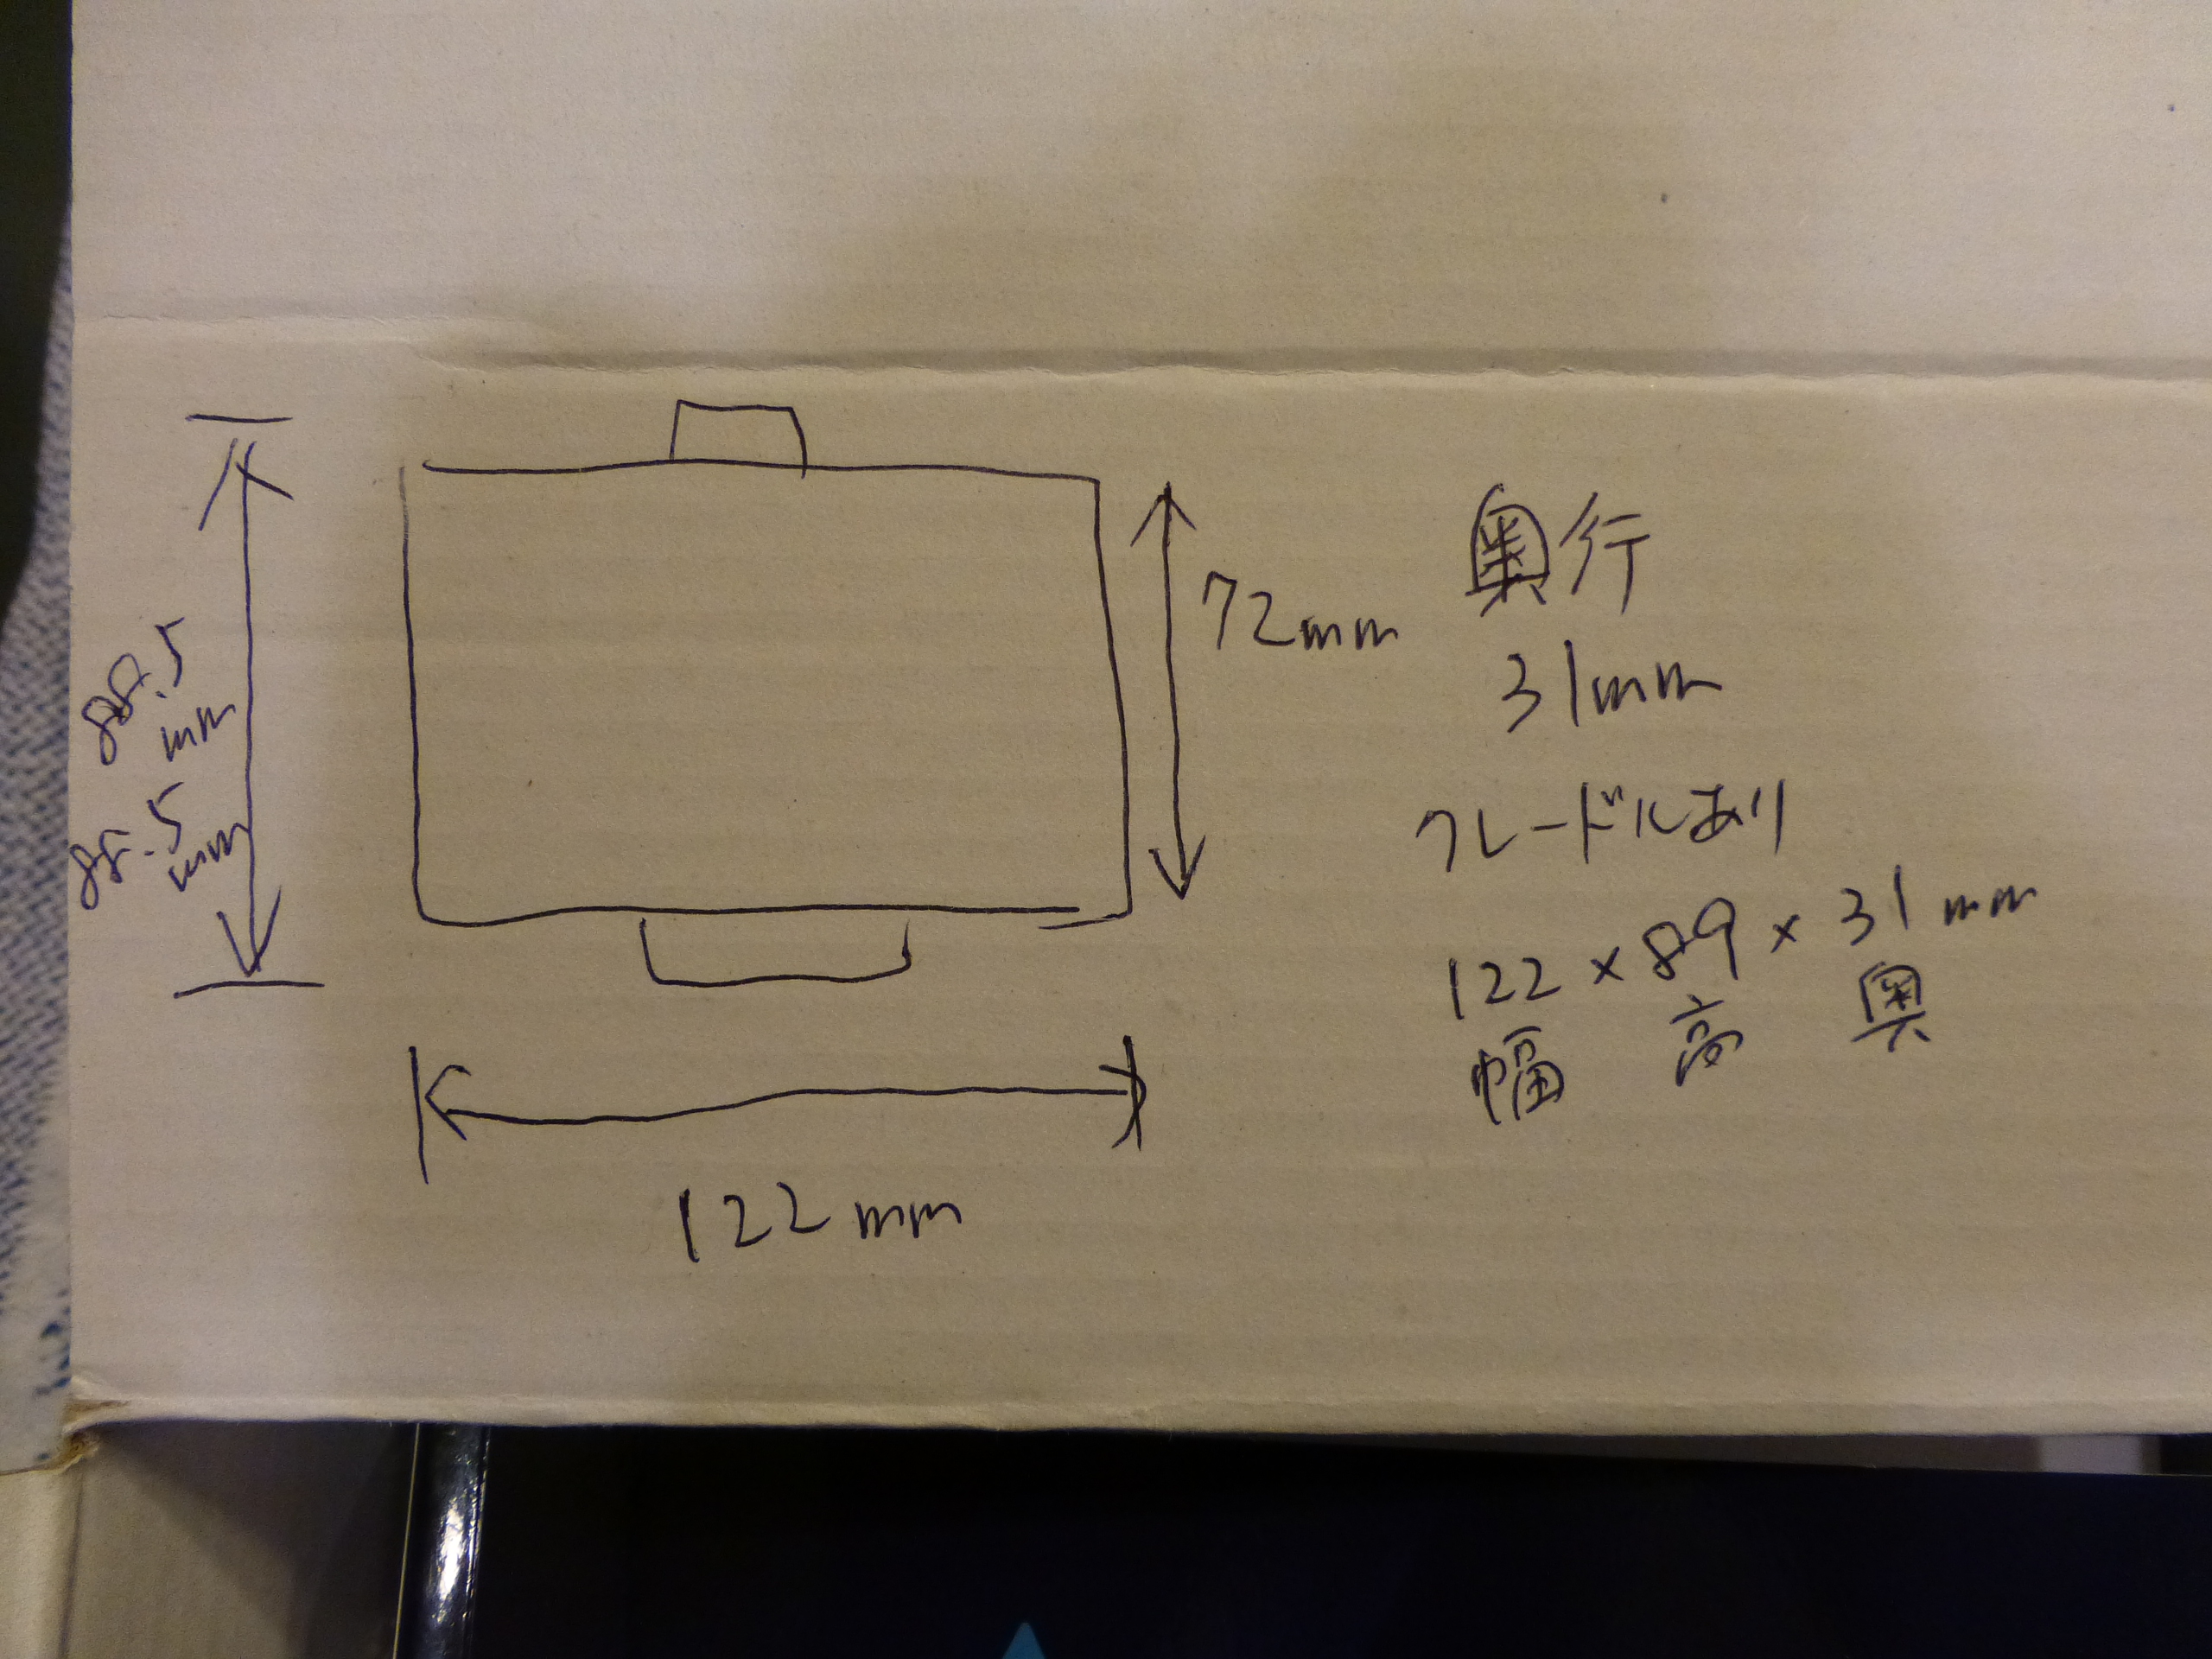 88.5
mm
88.5
mm
72mm
122mm
奥行
31mm
クレードルあり
122×89×31mm
幅 高 奥